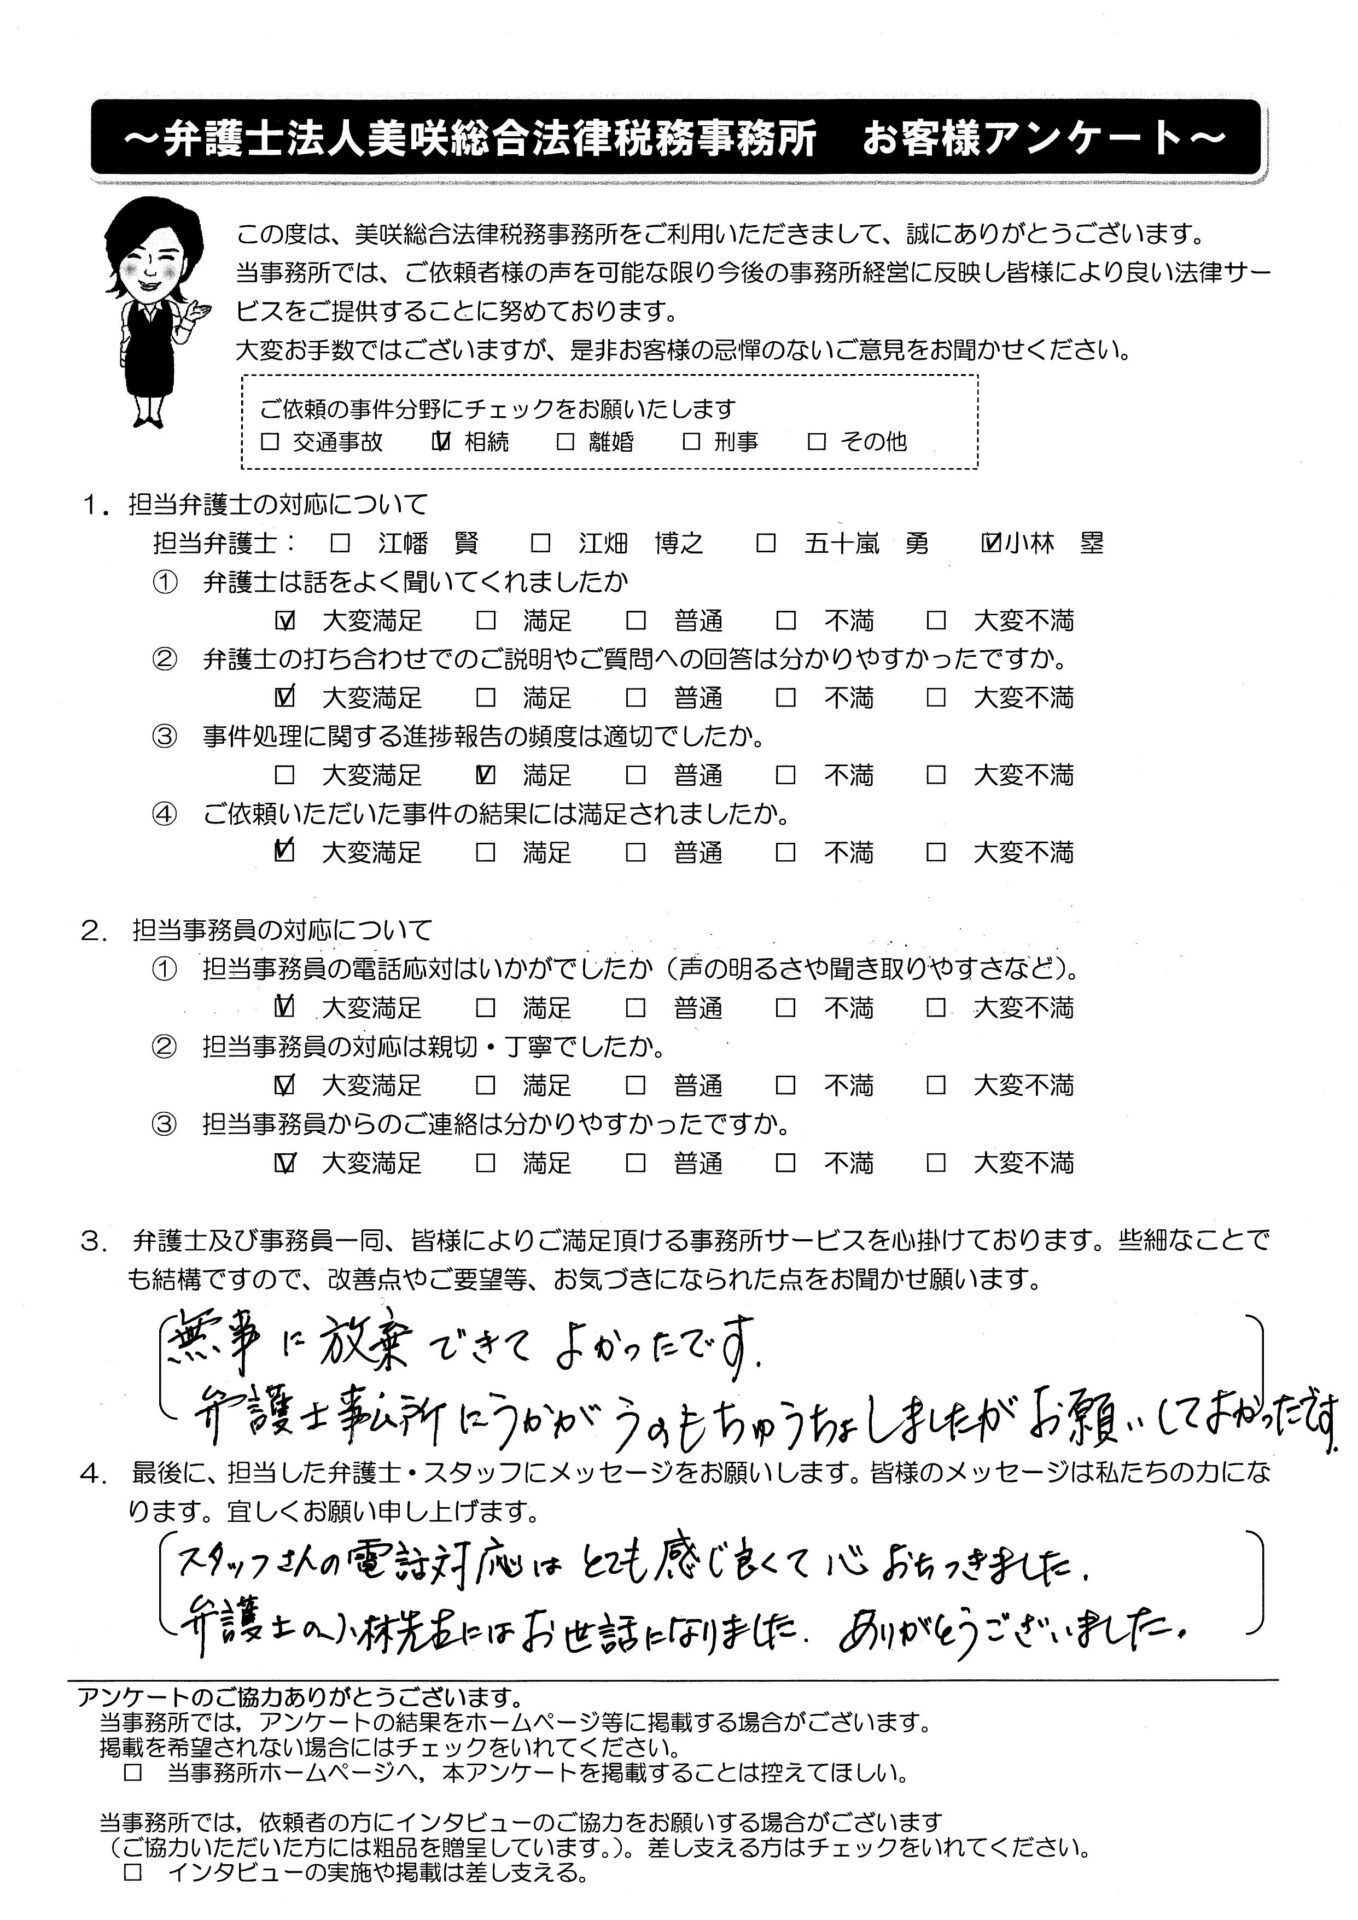 ～弁護士法人美咲総合法律税務事務所　お客様アンケート～
この度は、美咲総合法律税務事務所をご利用いただきまして、誠にありがとうございます。
当事務所では、ご依頼者様の声を可能な限り今後の事務所経営に反映し皆様により良い法律サー
ビスをご提供することに努めております。
大変お手数ではございますが、是非お客様の忌憚のないご意見をお聞かせください。
ご依頼の事件分野にチェックをお願いたします
□ 交通事故　☑ 相続　□ 離婚　□ 刑事　□ その他
１．担当弁護士の対応について
担当弁護士：　□　江幡　賢　□　江畑　博之　□　五十嵐　勇　☑小林　塁
①　弁護士は話をよく聞いてくれましたか
☑　大変満足　□　満足　□　普通　□　不満　□　大変不満
②　弁護士の打ち合わせでのご説明やご質問への回答は分かりやすかったですか。
☑　大変満足　□　満足　□　普通　□　不満　□　大変不満
③　事件処理に関する進捗報告の頻度は適切でしたか。
□　大変満足　☑　満足　□　普通　□　不満　□　大変不満
④　ご依頼いただいた事件の結果には満足されましたか。
☑　大変満足　□　満足　□　普通　□　不満　□　大変不満
２．担当事務員の対応について
①　担当事務員の電話応対はいかがでしたか（声の明るさや聞き取りやすさなど）。
☑　大変満足　□　満足　□　普通　□　不満　□　大変不満
②　担当事務員の対応は親切・丁寧でしたか。
☑　大変満足　□　満足　□　普通　□　不満　□　大変不満
③　担当事務員からのご連絡は分かりやすかったですか。
☑　大変満足　□　満足　□　普通　□　不満　□　大変不満
３．弁護士及び事務員一同、皆様によりご満足頂ける事務所サービスを心掛けております。些細なことで
も結構ですので、改善点やご要望等、お気づきになられた点をお聞かせ願います。
無事に放棄できてよかったです.
弁護士事ム所にうかがうのもちゅうちょしましたがお願いしてよかったです.
４．最後に、担当した弁護士・スタッフにメッセージをお願いします。皆様のメッセージは私たちの力にな
ります。宜しくお願い申し上げます。
スタッフさんの電話対応はとても感じ良くて心おちつきました.
弁護士の小林先生にはお世話になりました. ありがとうございました。
アンケートのご協力ありがとうございます。
当事務所では，アンケートの結果をホームページ等に掲載する場合がございます。
掲載を希望されない場合にはチェックをいれてください。
□　当事務所ホームページへ，本アンケートを掲載することは控えてほしい。
当事務所では，依頼者の方にインタビューのご協力をお願いする場合がございます
（ご協力いただいた方には粗品を贈呈しています。）。差し支える方はチェックをいれてください。
□　インタビューの実施や掲載は差し支える。